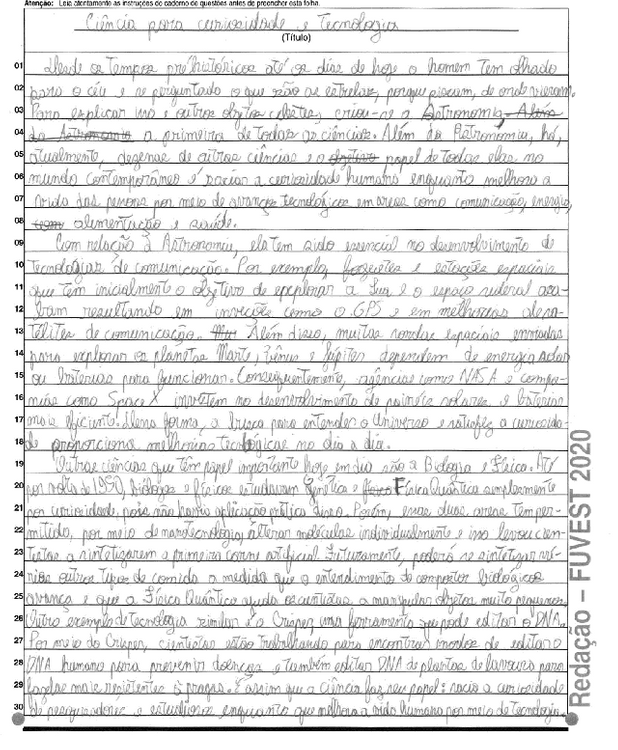 Atenção: Leia atentamente as instruções do caderno de questões antes de preencher esta folha.
Ciência para curiosidade e Tecnologia
(Título)
01 Desde os tempos pré históricos até os dias de hoje o homem tem olhado
02 para o céu e se perguntado o que são as estrelas, porque piscam, de onde vieram.
03 Para explicar isso e outros objetos celestes, criou-se a Astronomia. Além
04 da Astronomia a primeira de todas as ciências. Além da Astronomia, há,
05 atualmente, dezenas de outras ciências e o objetivo papel de todas elas no
06 mundo contemporâneo é saciar a curiosidade humana enquanto melhora a
07 vida das pessoas por meio de avanços tecnológicos em áreas como comunicação, energia,
08 alimentação e saúde.
09 Com relação à Astronomia, ela tem sido essencial no desenvolvimento de
10 tecnologias de comunicação. Por exemplo, foguetes e estações espaciais
11 que têm inicialmente o objetivo de explorar a Lua e o espaço sideral aca-
12 bam resultando em invenções como o GPS e em melhorias de sa-
13 télites de comunicação. Além disso, muitas sondas espaciais enviadas
14 para explorar os planetas Marte, Vênus e Júpiter dependem de energia solar
15 ou baterias para funcionar. Consequentemente, agências como NASA e compa-
16 nhias como Space X investem no desenvolvimento de painéis solares e baterias
17 mais eficiente. Dessa forma, a busca para entender o Universo e satisfaz a curiosida-
18 de proporciona melhorias tecnológicas no dia a dia.
19 Outras ciências que têm papel importante hoje em dia são a Biologia e Física. Até
20 por volta de 1990, biólogos e físicos estudavam Genética e Física Quântica simplesmente
21 por curiosidade, pois não havia aplicação prática disso. Porém, essas duas áreas tem per-
22 mitido, por meio de nanotecnologia, alterar moléculas individualmente e isso levou cien-
23 tistas a sintetizarem a primeira carne artificial. Futuramente, poderá se sintetizar vá-
24 rios outros tipos de comida a medida que o entendimento de compostos biológicos
25 avança e que a Física Quântica ajuda os cientistas a manipular objetos muito pequenos.
26 Outro exemplo de tecnologia similar é o Crisper, uma ferramenta que pode editar o DNA.
27 Por meio do Crisper, cientistas estão trabalhando para encontrar modos de editar o
28 DNA humano para prevenir doenças e também editar DNA de plantas de lavoura para
29 fazê-las mais resistentes à pragas. É assim que a Ciência faz seu papel: sacia a curiosidade
30 de pesquisadores e estudiosos enquanto que melhora a vida humana por meio de Tecnologia.
Redação – FUVEST 2020